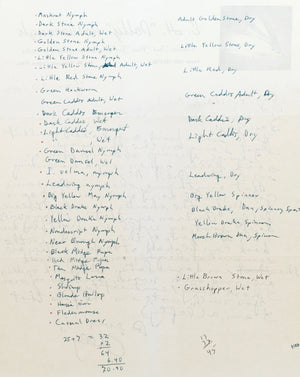 Muskrat Nymph
Dark Stone Nymph
Dark Stone Adult, Wet
Golden Stone Nymph
Golden Stone Adult, Wet
Little Yellow Stone Nymph
Little Yellow Stone Adult, Wet
Little Red Stone Nymph
Green Rockworm
Green Caddis Adult, Wet
Dark Caddis Emergent
Dark Caddis Wet
Light Caddis, Emergent
", Wet
Green Damsel Nymph
Green Damsel, Wet
Nymph
Leadwing Nymph
Big Yellow May, Nymph
Black Drake Nymph
Yellow Drake Nymph
Nondescript Nymph
Near Enough Nymph
Black Midge Pupa
Midge Pupa
Tan Midge Pupa
Mosquito Larva
Shrimp
Blonde
Fledermouse
Casual Dress
25+7 = 32
x2
64
6.40
70.40
Adult Golden Stone, Dry
Little Yellow Stone, Dry
Little Red, Dry
Green Caddis Adult, Dry
Dark Caddis, Dry
Light Caddis, Dry
Leadwing, Dry
Big Yellow Spinner
Black Drake, Dun, Spinner
Yellow Drake Spinner
March Brown Dun, Spinner
Little Brown Stone, Wet
Grasshopper, Wet